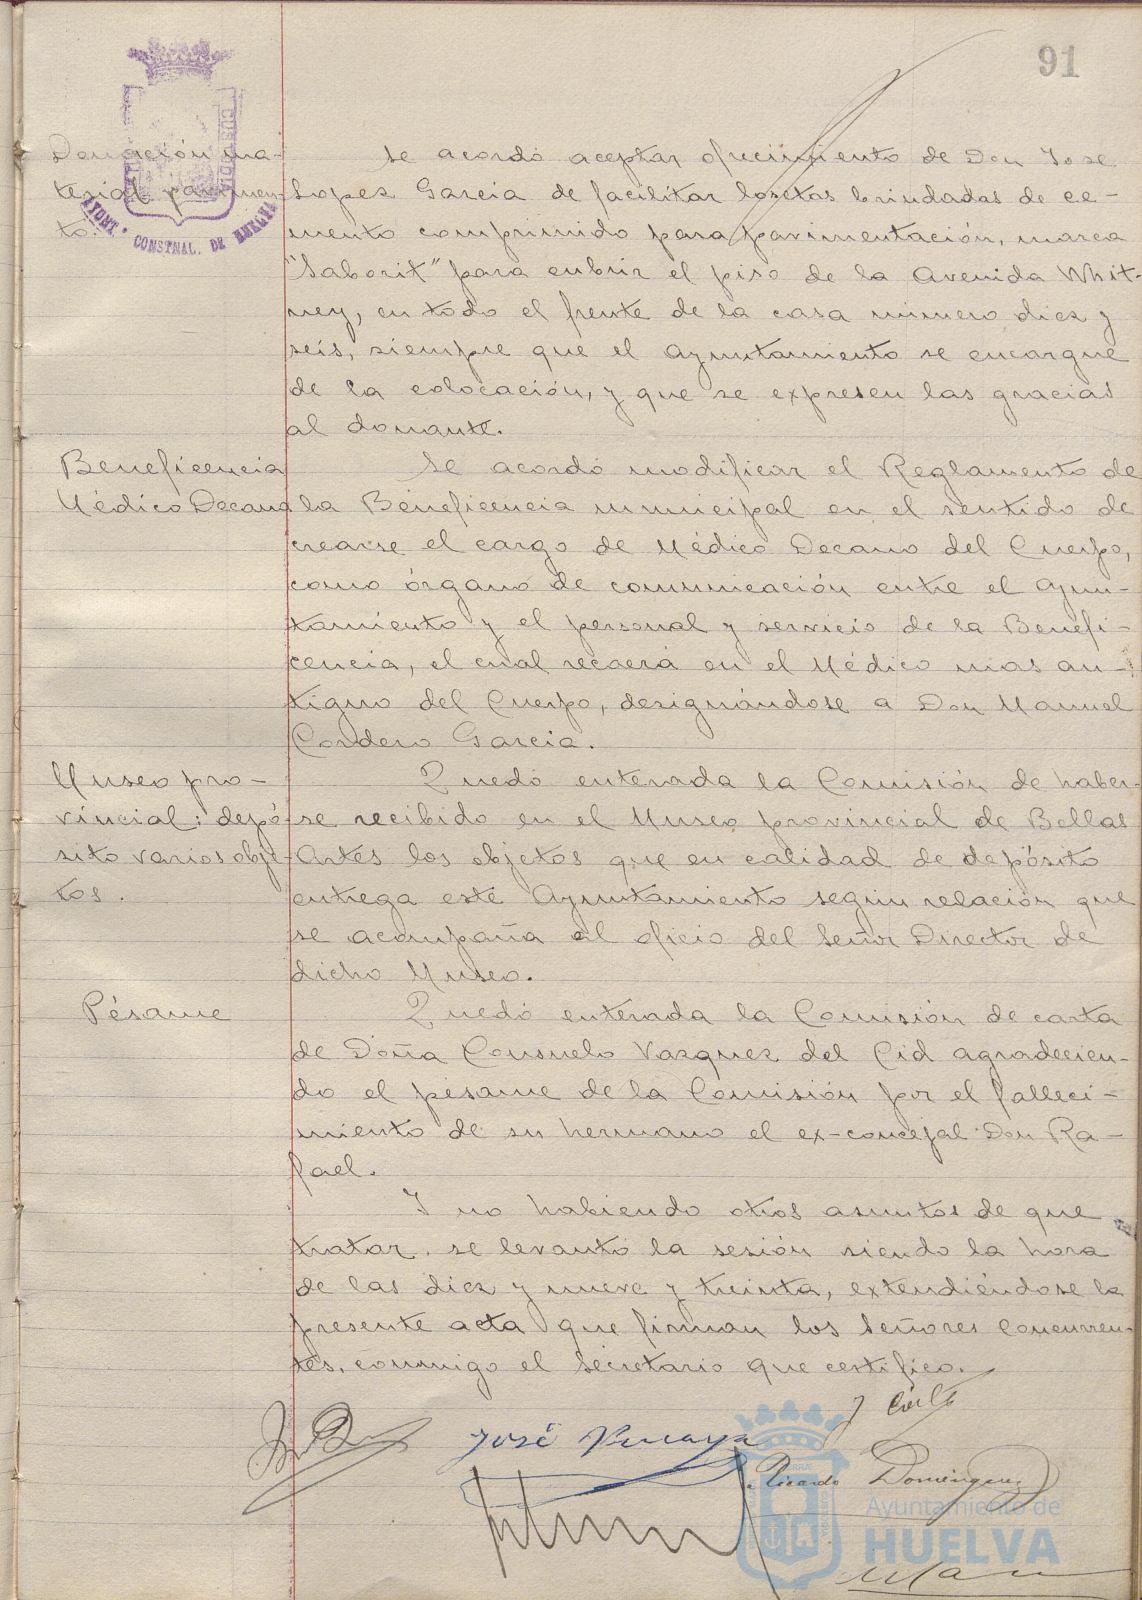 91
AYUNT. CONSTNAL. DE HUELVA
Donación ma-
terial pavimen-
to.
Se acordó aceptar ofrecimiento de Don Jose
Lopez Garcia de facilitar losetas brindadas de ce-
mento comprimido para pavimentación, marca
"Saborit" para cubrir el piso de la Avenida Whit-
ney, en todo el frente de la casa número diez y
seis, siempre que el Ayuntamiento se encargue
de la colocación, y que se expresen las gracias
al donante.
Beneficencia
Médico Decano
Se acordó modificar el Reglamento de
la Beneficencia municipal en el sentido de
crearse el cargo de Médico Decano del Cuerpo,
como órgano de comunicación entre el Ayun-
tamiento y el personal y servicio de la Benefi-
cencia, el cual recaerá en el Médico mas an-
tiguo del Cuerpo, designándose a Don Manuel
Cordero Garcia.
Museo pro-
vincial: depó-
sito varios obje-
tos.
Quedó enterada la Comisión de haber-
se recibido en el Museo provincial de Bellas
Artes los objetos que en calidad de depósito
entrega este Ayuntamiento según relación que
se acompaña al oficio del Señor Director de
dicho Museo.
Pésame
Quedó enterada la Comisión de carta
de Doña Consuelo Vazquez del Cid agradecien-
do el pésame de la Comisión por el falleci-
miento de su hermano el ex-concejal Don Ra-
fael.
Y no habiendo otros asuntos de que
tratar, se levantó la sesión siendo la hora
de las diez y nueve y treinta, extendiéndose la
presente acta que firman los Señores concurren-
tes, conmigo el Secretario que certifico.
José
Ricardo Domínguez
Ayuntamiento de
HUELVA